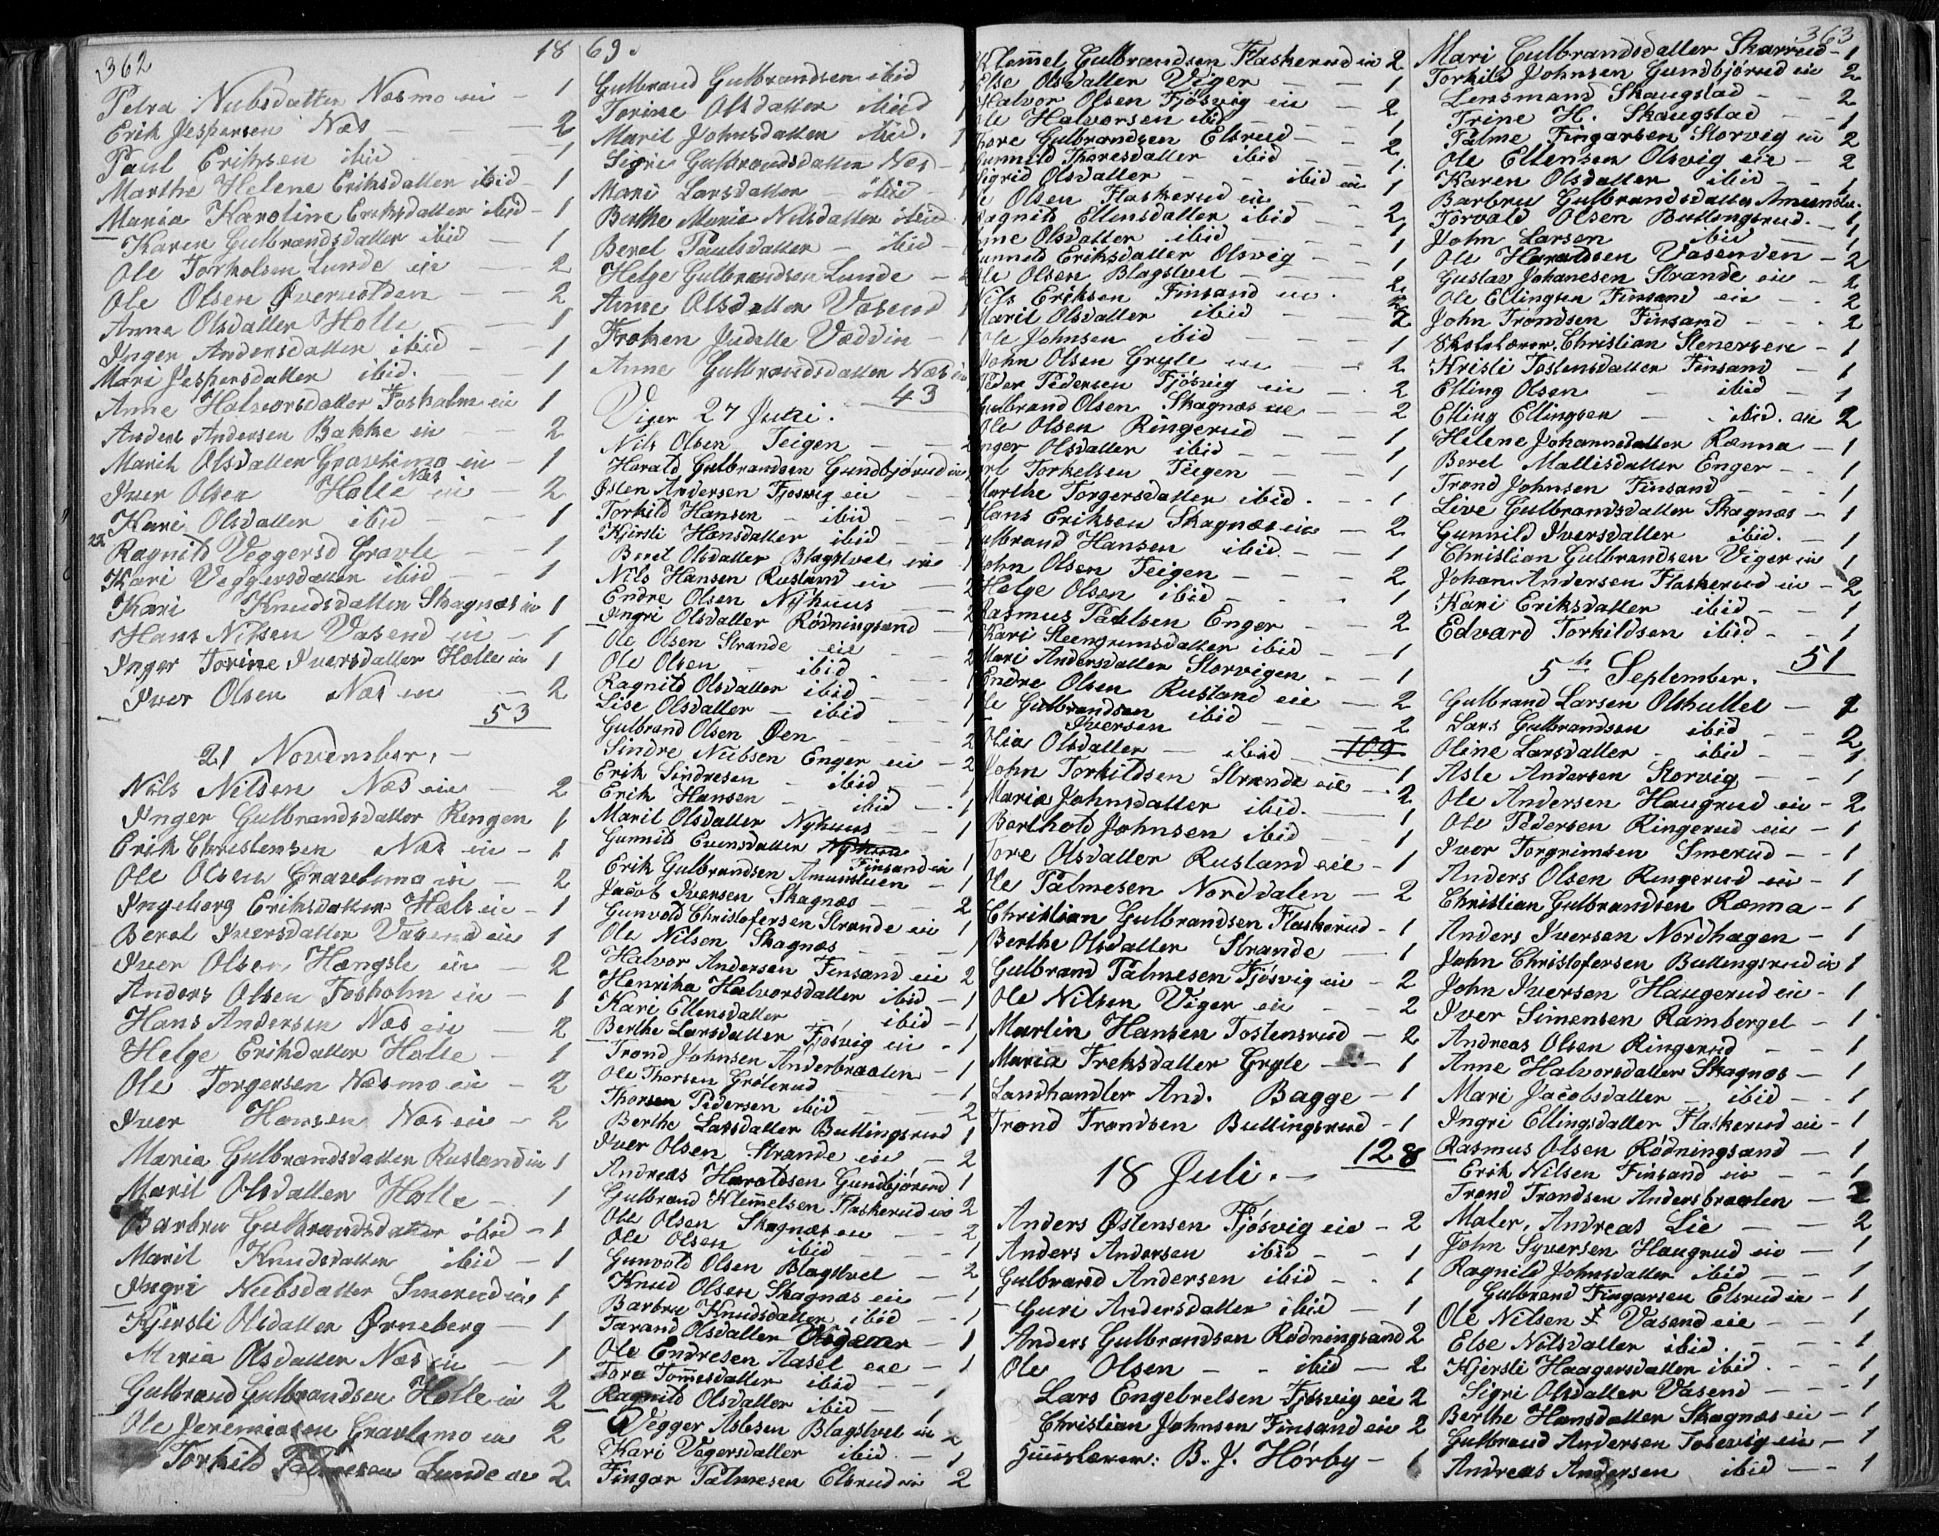 362
18 69.
Petra Nubsdatter Næsmo eie - 1
Erik Jespersen Næs - 2
Paul Eriksen ibid - 1
Marthe Helene Eriksdatter ibid - 1
Maria Karoline Eriksdatter ibid - 1
Karen Gulbrandsdatter ibid - 1
Ole Torkolsen Lunde eie - 2
Ole Olsen - 2
Anne Olsdatter Holle - 1
Inger Andersdatter ibid - 1
Mari Jespersdatter ibid. - 1
Anne Halvorsdatter Fosholm eie 1
Anders Andersen Bakke ein - 2
Marit Olsdatter ein - 1
Iver Olsen Næs Holle ein - 2
Kari Olsdatter ibid - 1
Ragnild Veggersd Gravle - 1
Kari Veggersdatter ibid - 1
Kari Knudsdatter Skagnæs ein 1
Hans Nilsen Vasend ein - 1
Inger Torine Iversdatter Holle ein 1
Iver Olsen Næs ein - 2
53
21 November. -
Nils Nilsen Næs ein - 2
Inger Gulbrandsdatter Ringen 1
Erik Christensen Næs ein - 1
Ole Olsen Gravlimo ein - 2
Ingeborg Eriksdatter Hæls ein - 1
Berel Iversdatter Vasend ein 1
Iver Olsen Hængsle ein - 2
Anders Olsen Fosholm ein - 1
Hans Andersen Næs ein - 2
Helge Erikdatter Holle - 1
Ole Torgersen Næsmo ein - 2
Iver Hansen Næs ein - 2
Maria Gulbrandsdatter Rustand ein 1
Marit Olsdatter Holle - 1
Barbru Gulbrandsdatter ibid - 1
Marit Knudsdatter ibid - 1
Ingri Nubsdatter Smerud ein 1
Kjersti Olsdatter Ørneberg - 1
Maria Olsdatter Næs ein - 1
Gulbrand Gulbrandsen Holle ein 2
Ole Jeremiasen Gravlemo ein 2
Torkild Palmesen Lunde ein 2
Gulbrand Gulbrandsen ibid 1
Torine Olsdatter ibid 1
Marit Johnsdatter ibid. 1
Sigri Gulbrandsdatter Næs - 1
Mari Larsdatter - ibid -
Berthe Marie Nilsdatter ibid
Berel Paulsdatter - ibid -
Helge Gulbrandsen Lunde -
Anne Olsdatter Vasend 1
Frøken Judille Væddin - 1
Anne Gulbrandsdatter Næs ein
43
Viger 27 Juni.
Nils Olsen Teigen - 2
Harald Gulbrandsen Gundbjørud ein
Østen Andersen Fjøsvig ein
Torkild Hansen - ibid - 1
Kjersti Hansdatter ibid - 1
Berel Olsdatter Blagstvet ein
Nils Hansen Rustand ein -
Endre Olsen Nyhuus - 2
Ingri Olsdatter Rødningsand - 1
Ole Olsen Strande eie - 2
Ole Olsen - ibid. - 1
Ragnild Olsdatter ibid - 1
Lise Olsdatter - ibid - 1
Gulbrand Olsen Øen - 2
Sindre Nubsen Enger eie - 2
Erik Sindresen - ibid - 1
Erik Hansen - ibid - 1
Marit Olsdatter Nyhuus - 1
Gunnild Evensdatter Finsand ein 1
Erik Gulbrandsen Amundlien - 1
Jacob Iversen Skagnæs - 2
Gunvold Christofersen Strande eie 1
Ole Nilsen Skagnæs - 1
Halvor Andersen Finsand eie 2
Henrika Halvorsdatter ibid - 1
Kari Ellensdatter ibid - 1
Berthe Larsdatter Fjøsvig ein - 1
Trond Johnsen Anderbraaten - 1
Ole Thorsen Grølerud - 1
Thorsen Pedersen ibid - 2
Berthe Larsdatter Bullingsrud 1
Iver Olsen Strande ein - 2
Andreas Haroldsen Gundbjørud 1
Gulbrand Klemelsen Flaskerud ein 2
Ole Olsen Skagnæs ein - 2
Ole Olsen ibid - 1
Gunvold Olsen Blagstvet - 2
Knud Olsen Skagnæs eie - 1
Barbru Knudsdatter ibid - 1
Tarand Olsdatter Vigen - 1
Ole Endresen Aasel eie - 1
Tora Tomesdatter ibid - 1
Ragnild Olsdatter ibid - 1
Vegger Aslesen Blagstvet ein 2
Kari Vegersdatter ibid - 1
Fingar Palmesen Elsrud ein 2
363
Klemmel Gulbrandsen Flaskerud ein 2
Else Olsdatter Viger - 1
Halvor Olsen Fjøsvig ein - 2
Ole Halvorsen ibid - 1
Thore Gulbrandsen Elsrud - 2
Gunnild Thoresdatter ibid - 1
Sigrid Olsdatter - ibid ein 1
Olsen Flaskerud ein - 2
Ragnild Ellensdatter ibid - 1
Anne Olsdatter ibid - 1
Gunnild Eriksdatter Olsvig - 1
Ole Olsen Blagstvet - 2
Nils Eriksen Finsand ein. 2
Marit Olsdatter ibid - 2
Ole Johnsen ibid - 1
John Olsen Gryle ein - 2
Peder Pedersen Fjøsvig ein - 2
Gulbrand Olsen Skagnæs eie - 2
Ole Olsen Ringerud - 1
Inger Olsdatter ibid - 1
Torkelsen Teigen - 1
Marthe Torgersdatter ibid. - 1
Hans Eriksen Skagnæs ein - 2
Gulbrand Hansen ibid. - 1
John Olsen Teigen - 2
Helge Olsen ibid - 1
Rasmus Paulsen Enger - 2
Kari Steengrimsdatter ibid - 1
Mari Andersdatter Storvigen - 1
Endre Olsen Rustand eie - 2
Ole Gulbrandsen Iversen ibid - 2
Olia Olsdatter - ibid 109
John Torkildsen Strande eie - 1
Maria Johnsdatter ibid. - 2
Berthold Johnsen ibid - 1
Tore Olsdatter Rustand eie - 1
Ole Palmesen Norddalen - 2
Christian Gulbrandsen Flaskerud - 1
Berthe Olsdatter Strande - 1
Gulbrand Palmesen Fjøsvig ein - 2
Ole Nilsen Viger ein - 2
Martin Hansen Tostensrud - 2
Maria Freksdatter Gryle - 1
Landhandler And. Bagge - 1
Trond Trondsen Bullingsrud - 1
128
18 Juli. -
Anders Østensen Fjøsvig eie - 2
Anders Andersen ibid - 1
Gulbrand Andersen ibid - 1
Guri Andersdatter ibid - 1
Anders Gulbrandsen Rødningsand 2
Ole Olsen - ibid - 2
Lars Engebretsen Fjøsvig eie 2
Christian Johnsen Finsand ein 2
Huuslærer: B. J. Hørby - 1
Mari Gulbrandsdatter Skarrud - 1
Torkild Johnsen Gundbjørud ein 2
Lensmand Skaugstad - 2
Trine H. Skaugstad - 1
Palme Fingarsen Storvig ein 2
Ole Ellensen Olsvig eie - 2
Karen Olsdatter ibid - 1
Barbru Gulbrandsdatter Amundlien.
Torvald Olsen Bullingsrud. - 1
John Larsen ibid - 1
Ole Haraldsen Vasenden - 2
Gustav Johanesen Strande eie - 2
Ole Ellingsen Finsand ein - 2
John Trondsen Finsand - 2
Skolelærer Christian Stenersen - 1
Kristi Tostensdatter Finsand - 1
Elling Olsen - ibid - 1
Elling Ellingsen - ibid. ein 2
Helene Johannesdatter Rænna - 1
Berel Mallisdatter Enger - 1
Trond Johnsen Finsand - 1
Live Gulbrandsdatter Skagnæs - 1
Gunnild Iversdatter ibid. - 1
Christian Gulbrandsen Viger ein 1
Johan Andersen Flaskerud ein - 2
Kari Eriksdatter ibid - 1
Edvard Torkildsen ibid - 1
51
5te September.
Gulbrand Larsen Olshullet - 2
Lars Gulbrandsen ibid - 2
Oline Larsdatter - ibid - 1
Asle Andersen Storvig - 1
Ole Andersen Haugrud ein - 2
Ole Pedersen Ringerud ein - 1
Iver Torgrimsen Smerud - 1
Anders Olsen Ringerud ein - 1
Christian Gulbrandsen Rænna - 1
Anders Iversen Nordhagen - 1
John Christofersen Bullingsrud ein 1
John Iversen Haugerud ein - 1
Iver Simensen Ramberget - 1
Andreas Olsen Ringerud - 1
Anne Halvorsdatter Skagnæs - 1
Mari Jacobsdatter - ibid - 1
Ingri Ellingsdatter Flaskerud ein - 1
Rasmus Olsen Rødningsand - 1
Erik Nilsen Finsand ein - 1
Trond Trondsen Andersbraaten - 2
Maler, Andreas Lie - 2
John Syversen Haugrud ein - 1
Ragnild Johnsdatter ibid - 1
Gulbrand Fingarsen Elsrud ein - 1
Ole Nilsen Vasend eie - 1
Else Nilsdatter ibid. - 1
Kjersti Haagersdatter ibid. - 1
Sigri Olsdatter Vasend - 1
Berthe Hansdatter Skagnæs ein - 1
Gulbrand Andersen ein - 1
Andreas Andersen ibid - 1